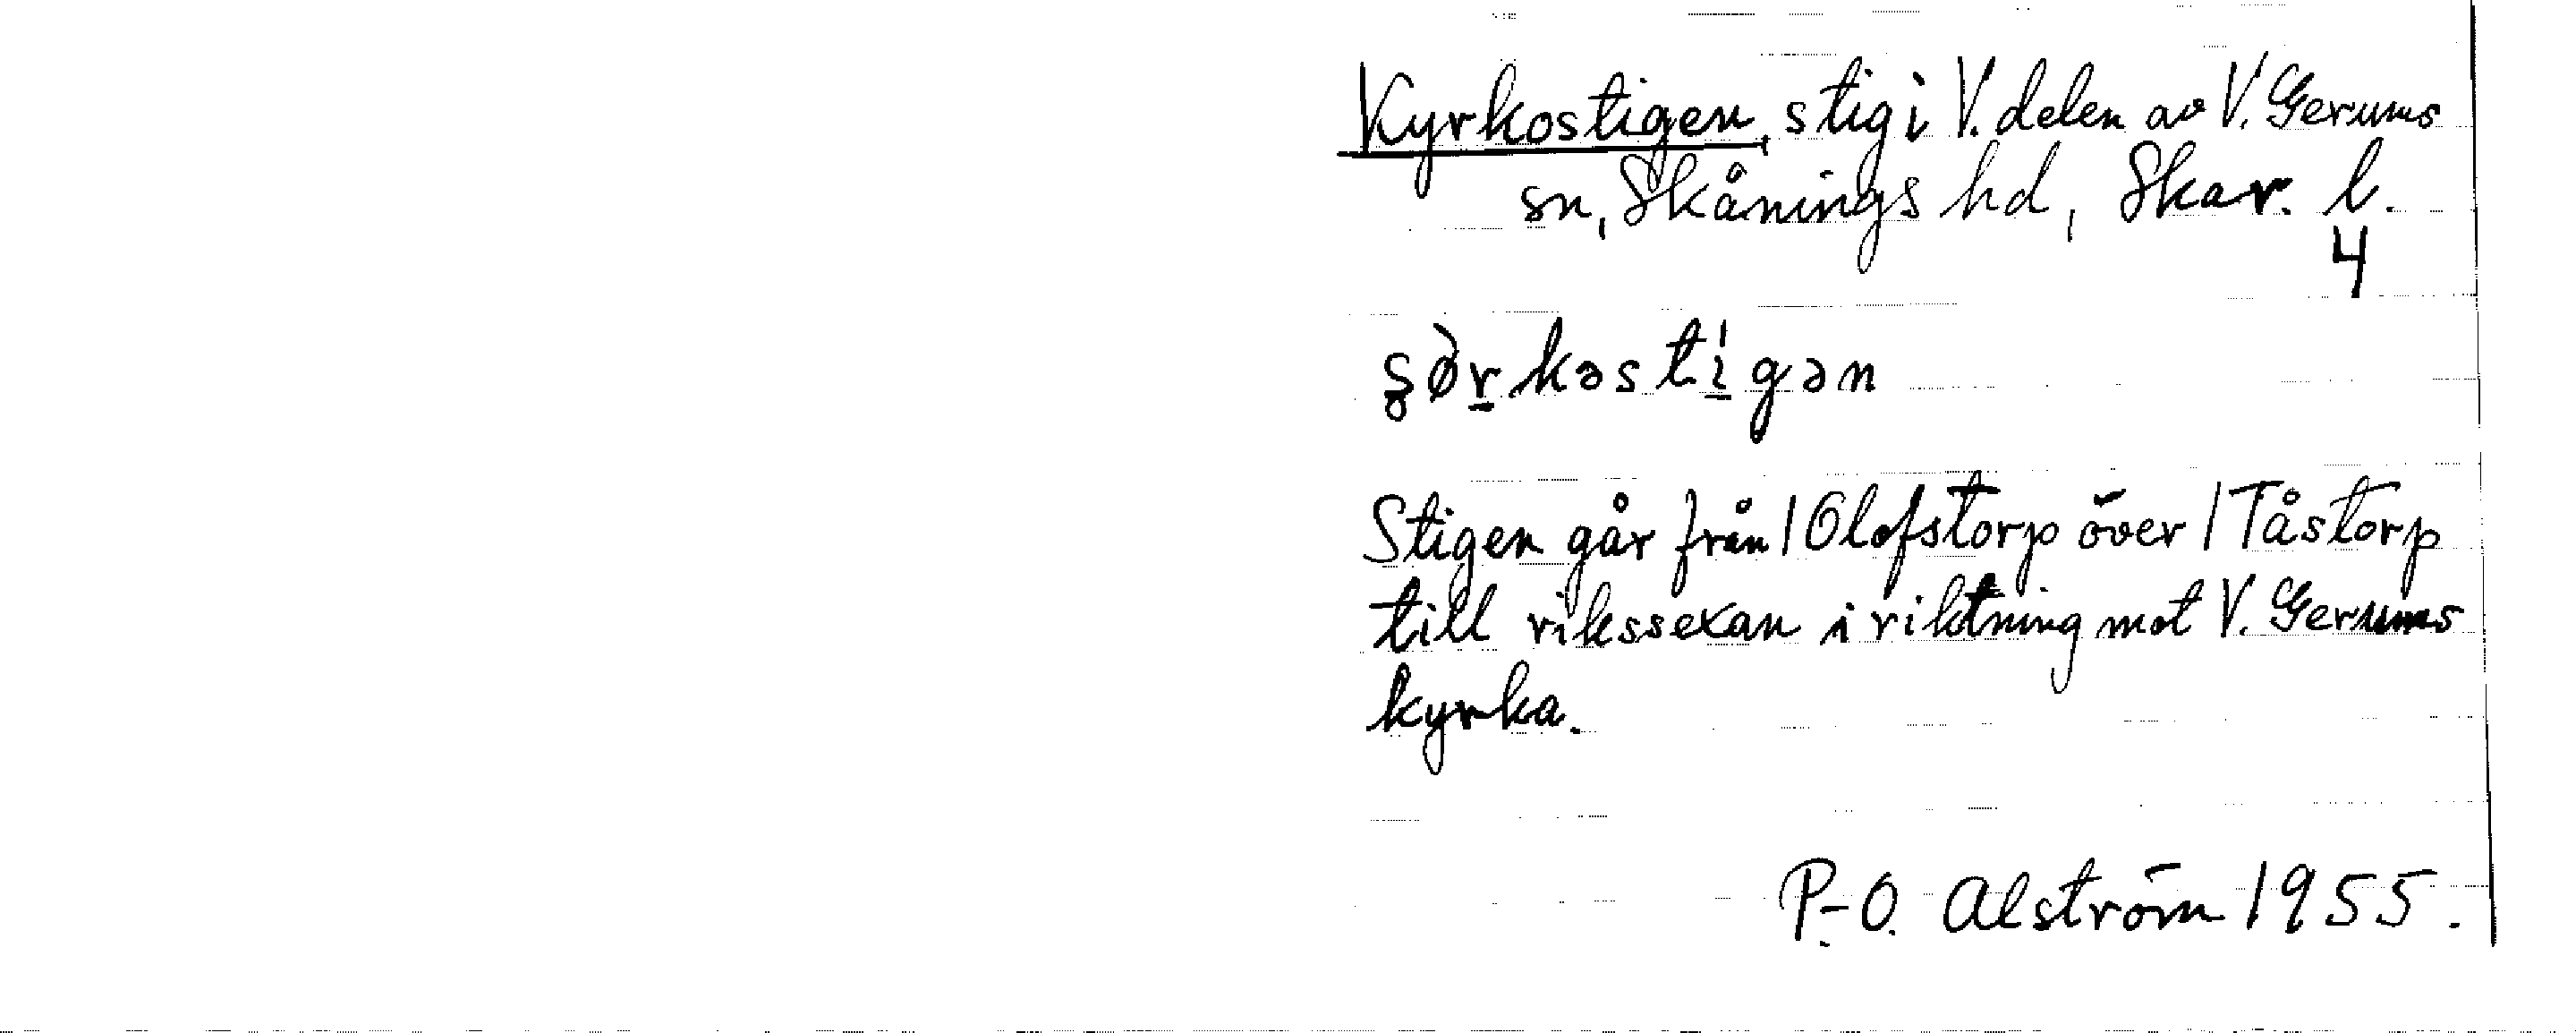 Kyrkostigen, stig i V. delen av V. Gerums
sn, Skånings hd, Skar. l.
4
Stigen går från | Olofstorp över | Tåstorp
till rikssexan i riktning mot V. Gerums
kyrka.
P.-O. Alström 1955.